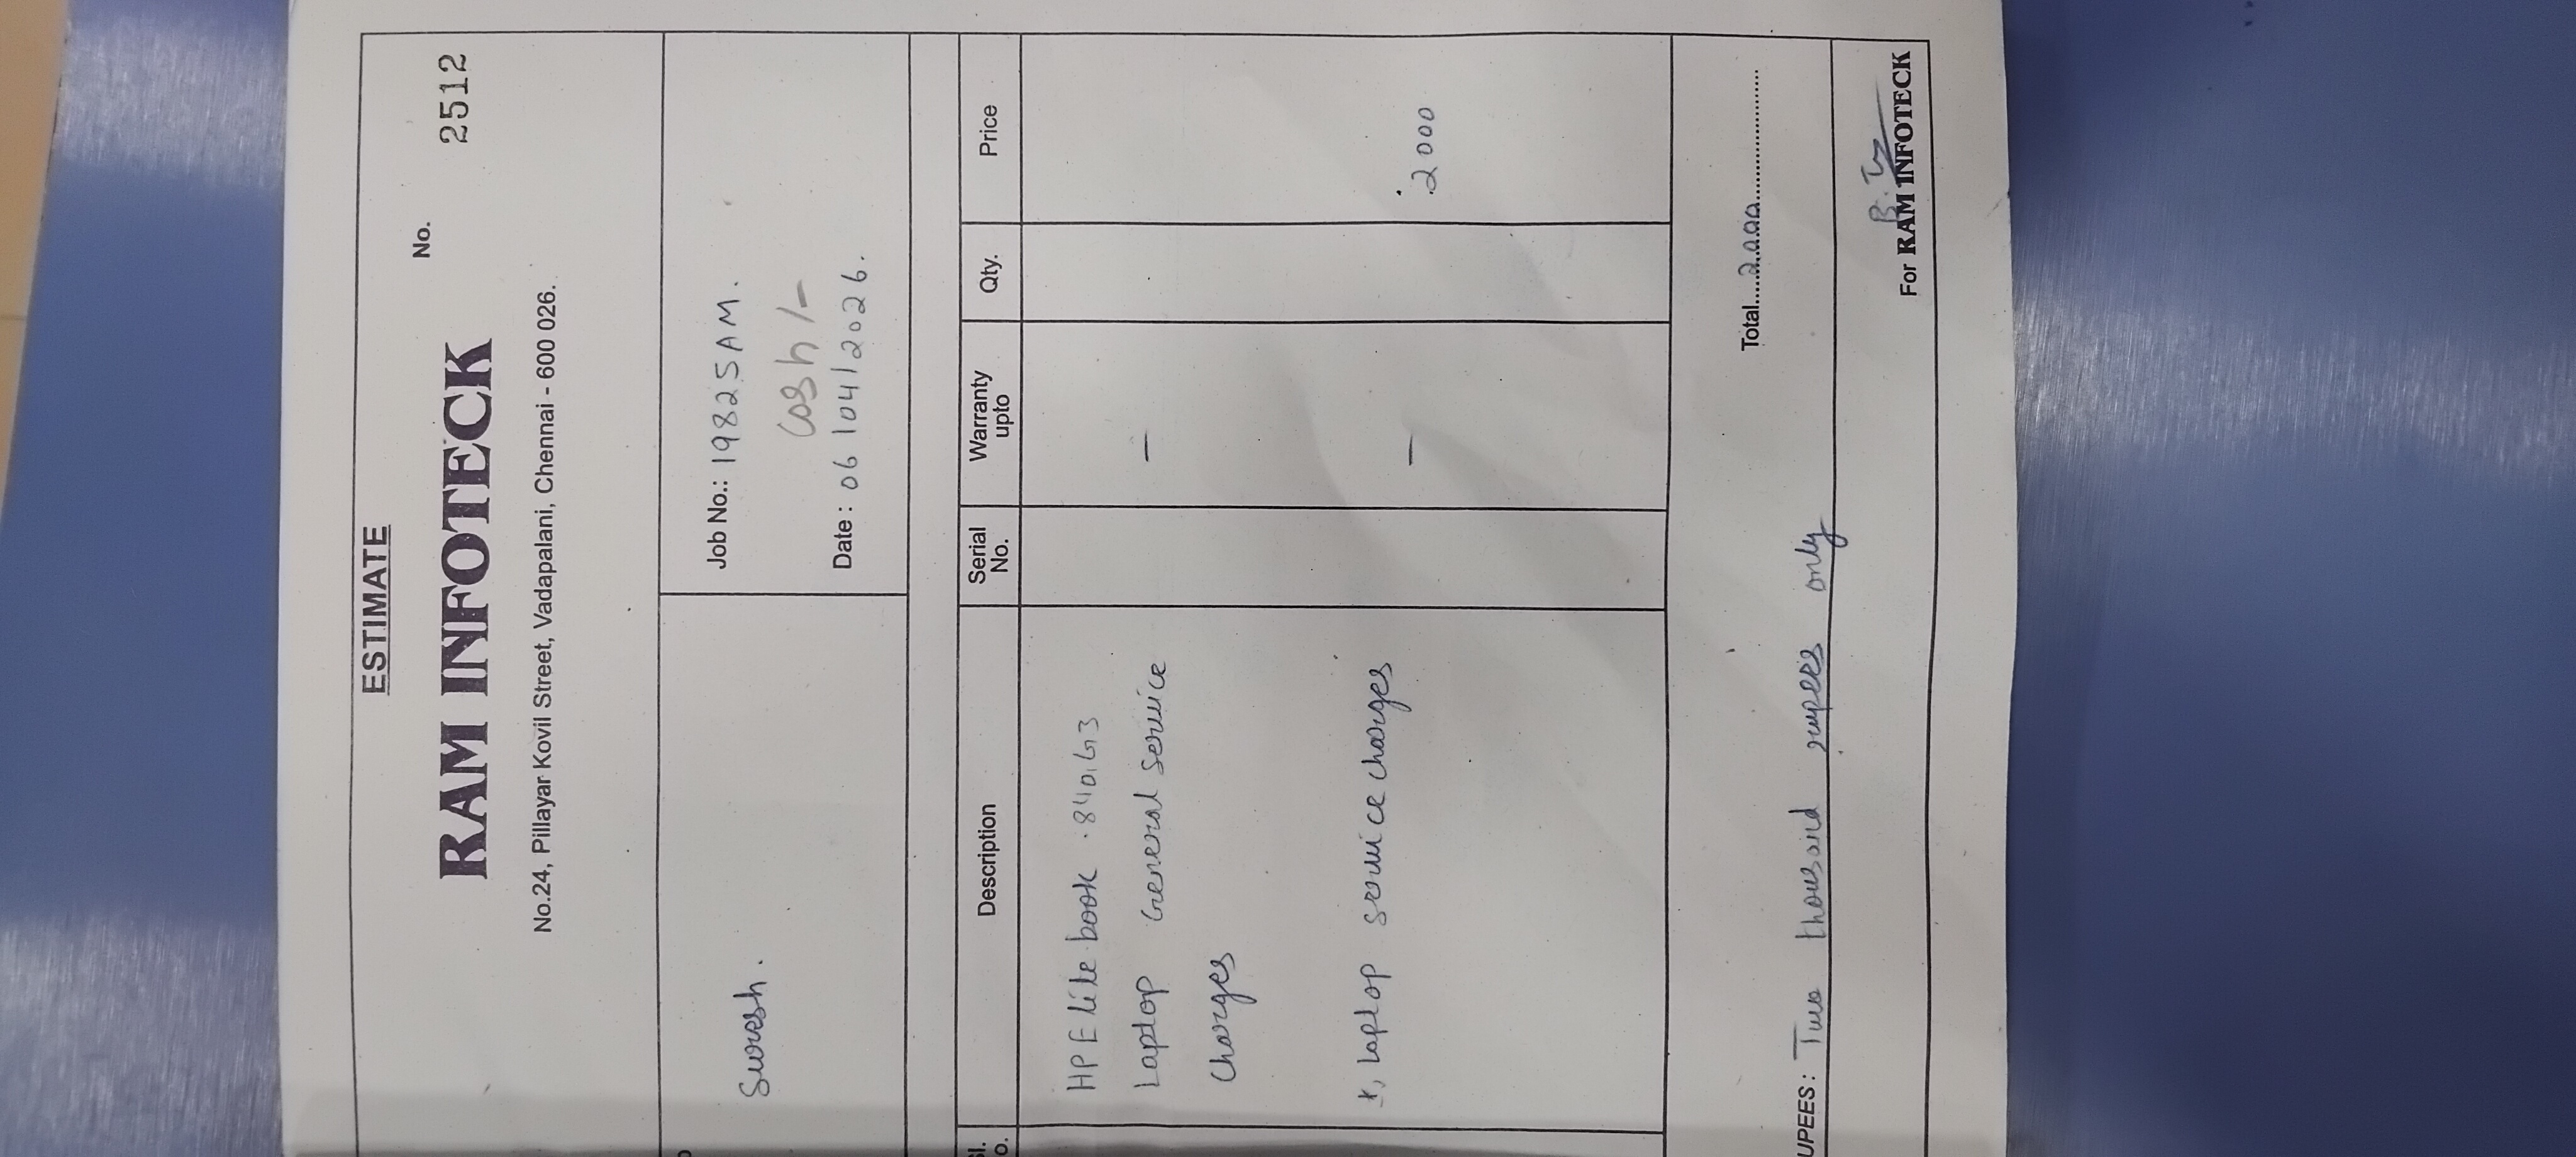 ESTIMATE
RAM INFOTECK
No. 2512
No.24, Pillayar Kovil Street, Vadapalani, Chennai - 600 026.
Suresh.
Job No.: 19825AM.
Cash /-
Date: 06/04/2026.
Description
Serial No.
Warranty upto
Qty.
Price
HP Elite book 840 G3
Laptop General Service -
Charges
*, Laptop service charges - 2000
Total....2000....
UPEES: Two thousand rupees only
For RAM INFOTECK